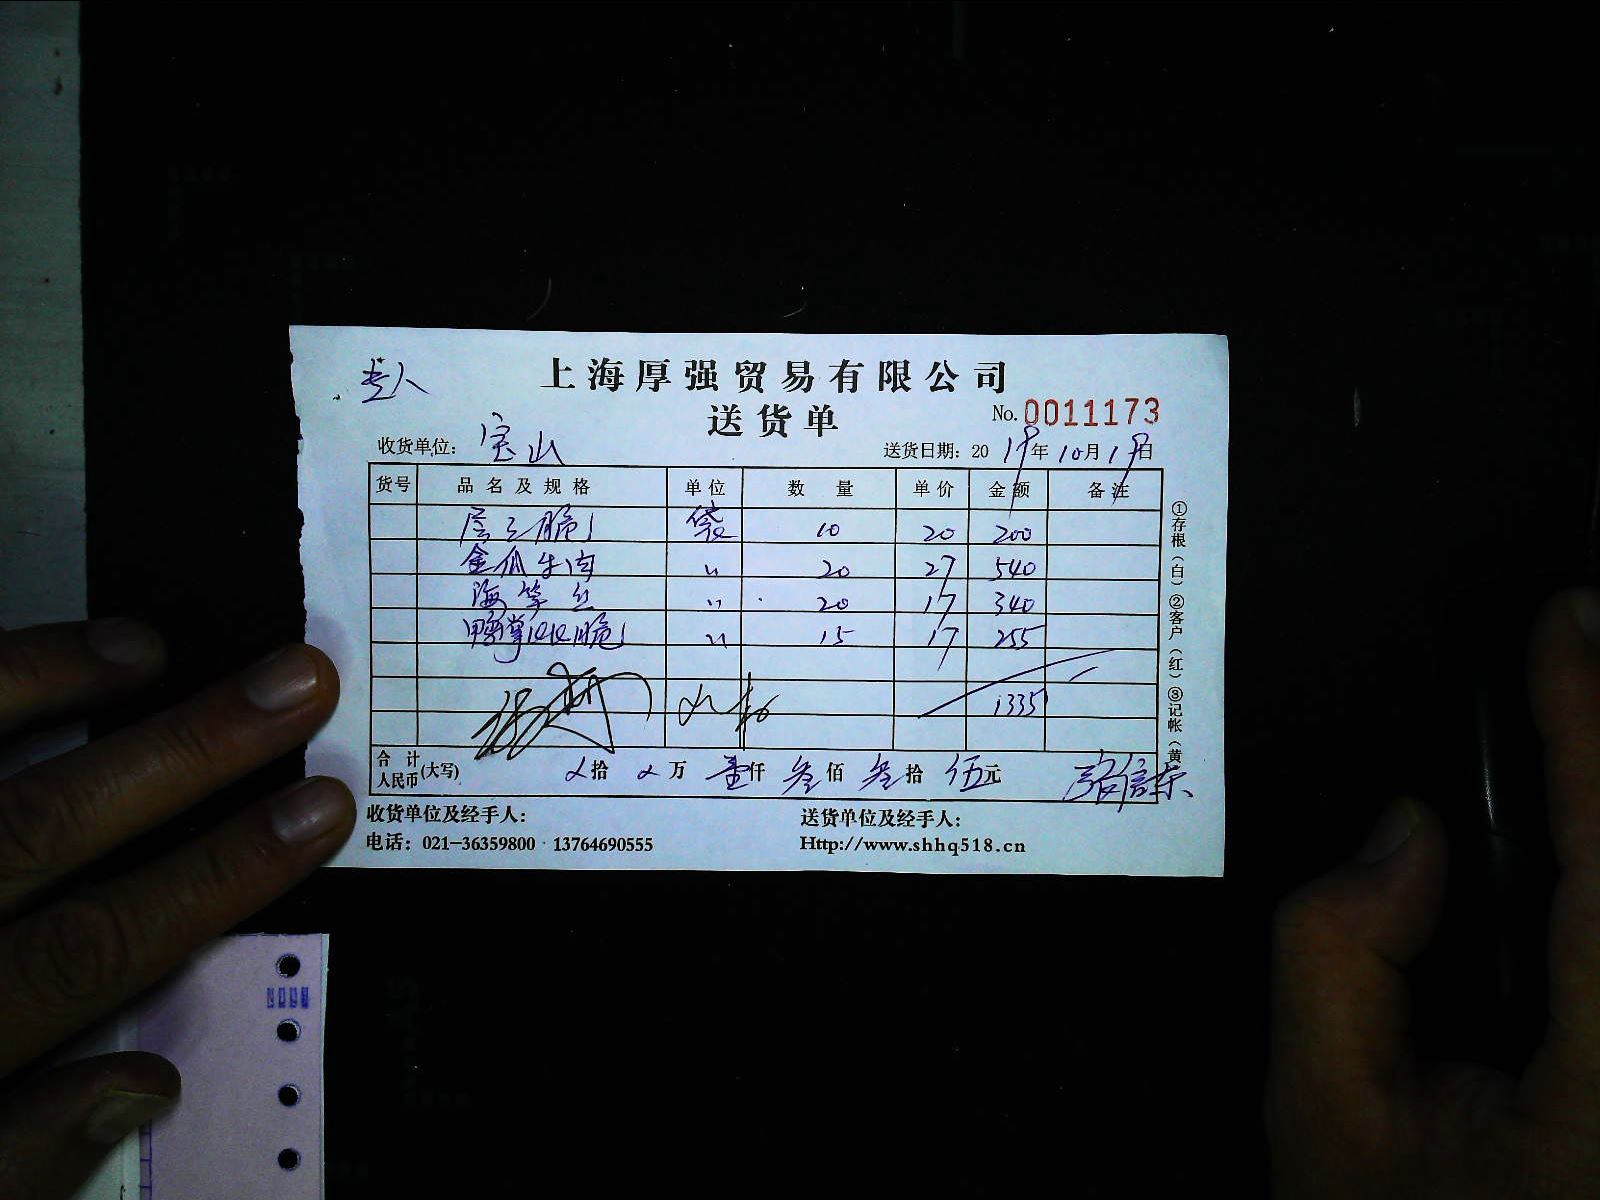 上海厚强贸易有限公司
送货单
No. 0011173
收货单位: 宝山
送货日期: 2019年10月19日
货号 品名及规格 单位 数量 单价 金额 备注
层层脆 袋 10 20 200
金瓜牛肉 〃 20 27 540
海笋丝 〃 20 17 340
鸭掌 脆 〃 15 17 255
1335
合计人民币(大写) 拾 万 壹仟 叁佰 叁拾 伍元
①存根(白)②客户(红)③记帐(黄
收货单位及经手人:
送货单位及经手人:
电话: 021-36359800 13764690555
Http://www.shhq518.cn